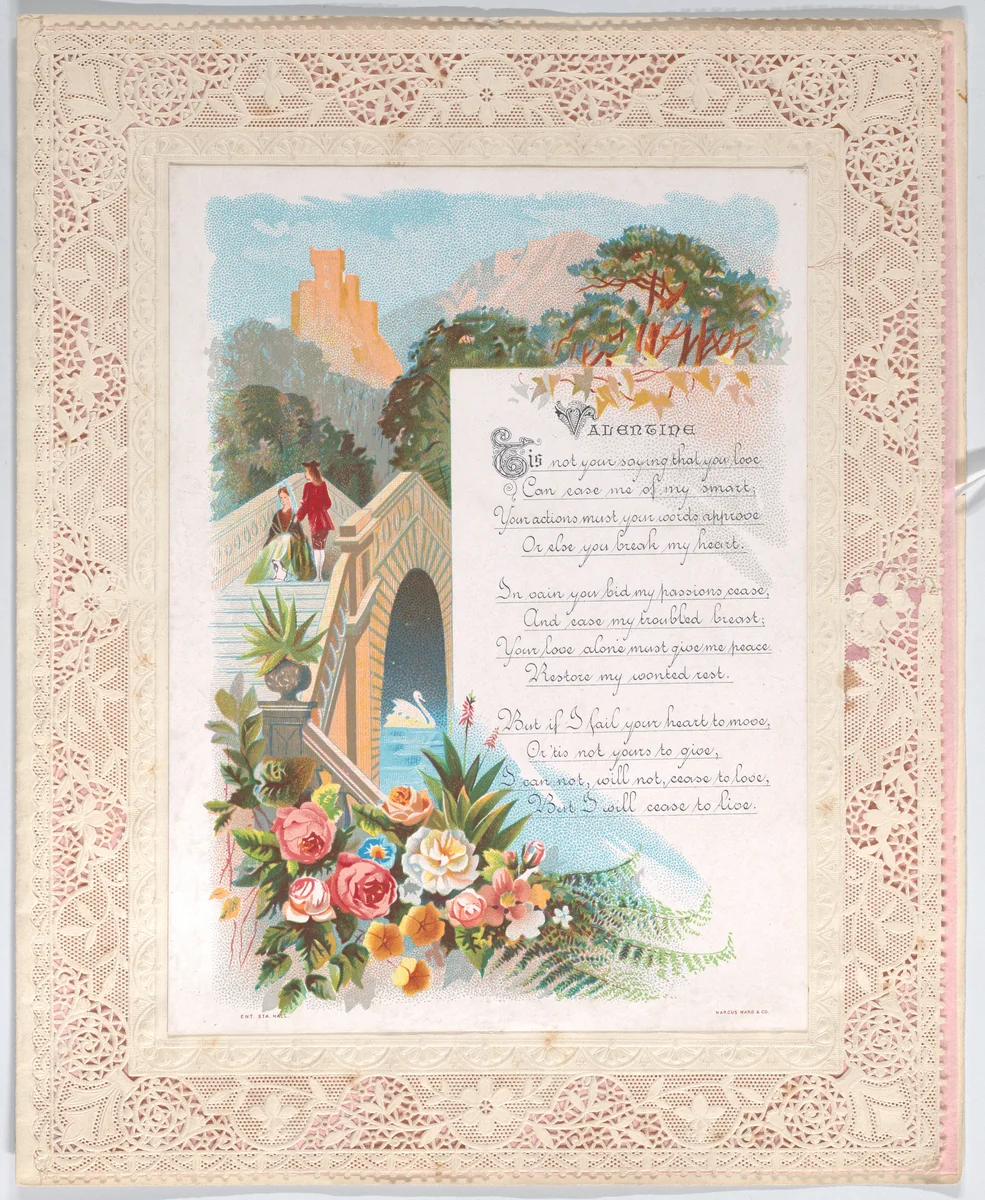 VALENTINE
Tis not your saying that you love
Can ease me of my smart;
Your actions must your words approve
Or else you break my heart.
In vain you bid my passions cease,
And ease my troubled breast;
Your love alone must give me peace.
Restore my wonted rest.
But if I fail your heart to move,
Or 'tis not yours to give,
I can not, will not, cease to love,
But I will cease to live.
ENT. STA. HALL.
MARCUS WARD & CO.